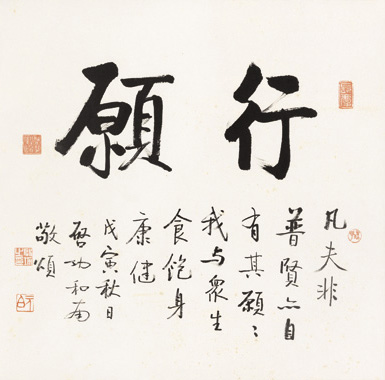 行願
凡夫非
普賢亦自
有其願〻
我与衆生
食飽身
康健
戊寅秋日
啓功和南
敬頌